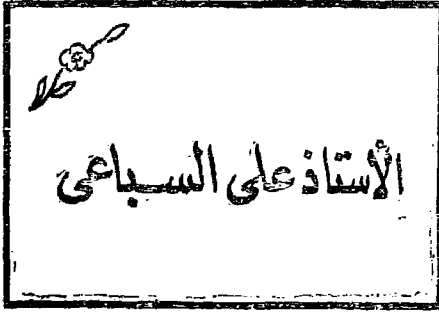 الأستاذ على السباعى